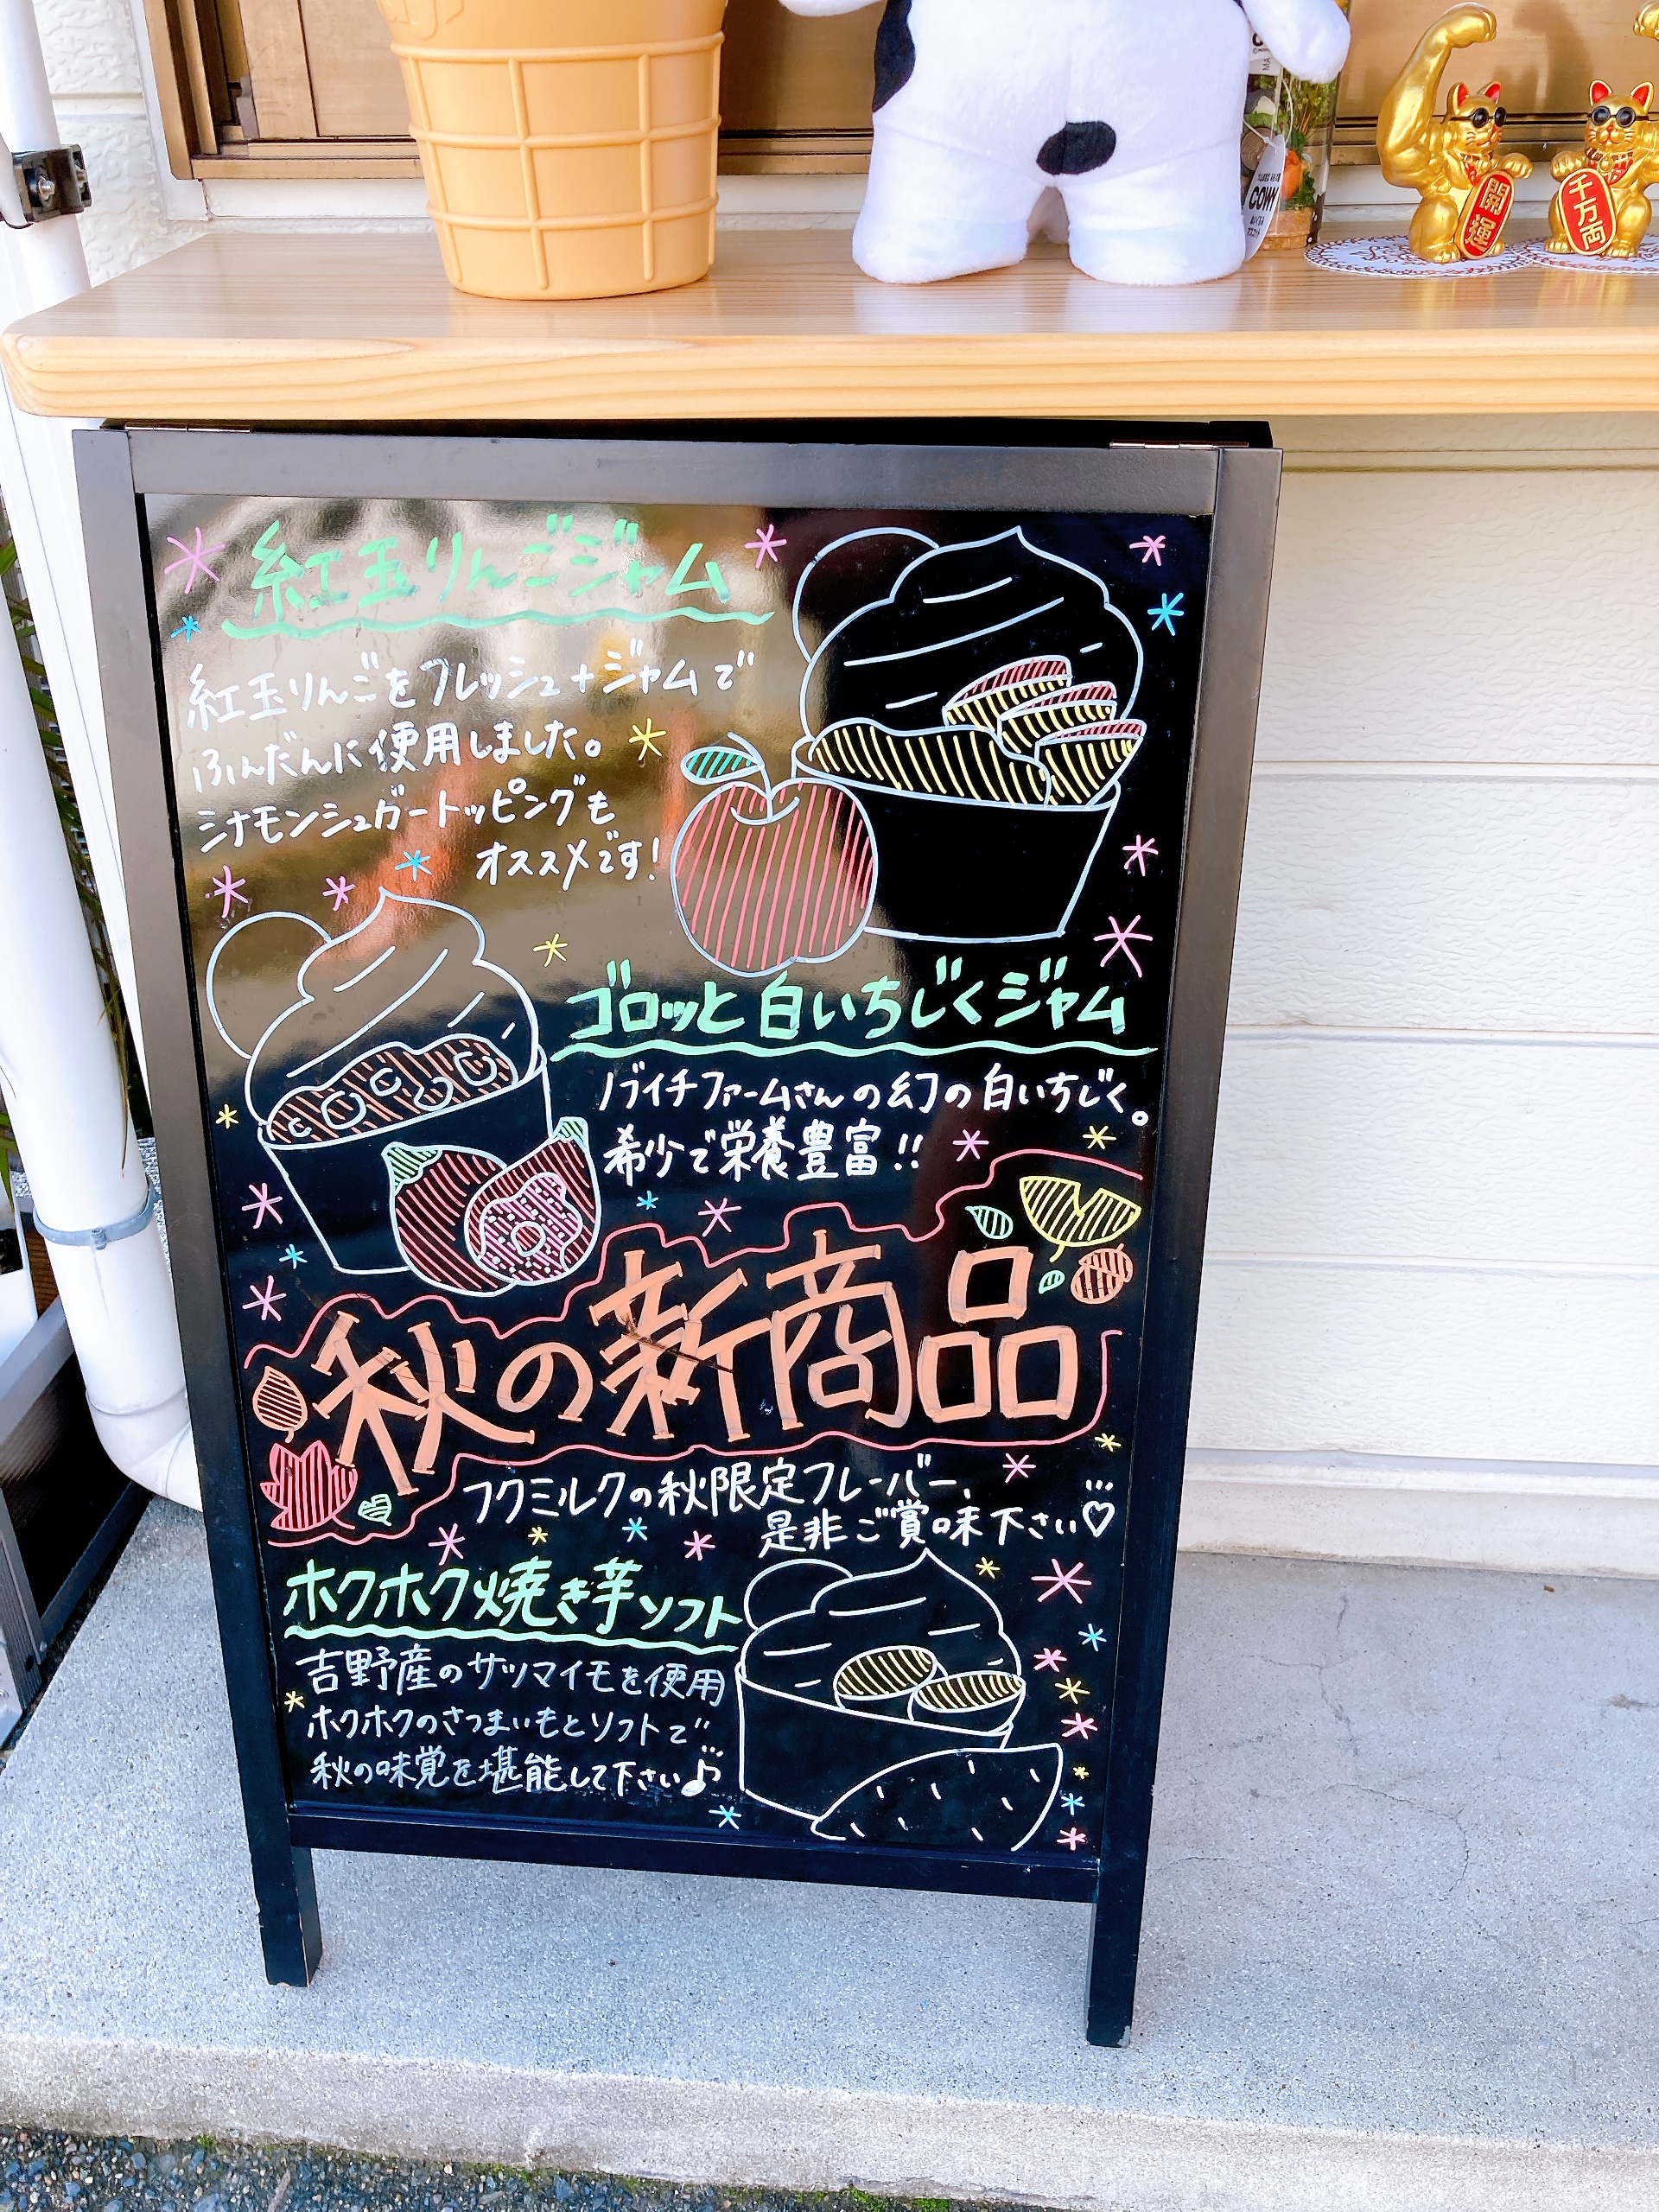 開運
千万両
COW
紅玉りんごジャム
紅玉りんごをフレッシュ+ジャムで
ふんだんに使用しました。
シナモンシュガートッピングも
オススメです!
ゴロッと白いちじくジャム
ノブイチファームさんの幻の白いちじく。
希少で栄養豊富!!
秋の新商品
フクミルクの秋限定フレーバー、
是非ご賞味下さい♡
ホクホク焼き芋ソフト
吉野産のサツマイモを使用
ホクホクのさつまいもとソフトで
秋の味覚を堪能して下さい♪